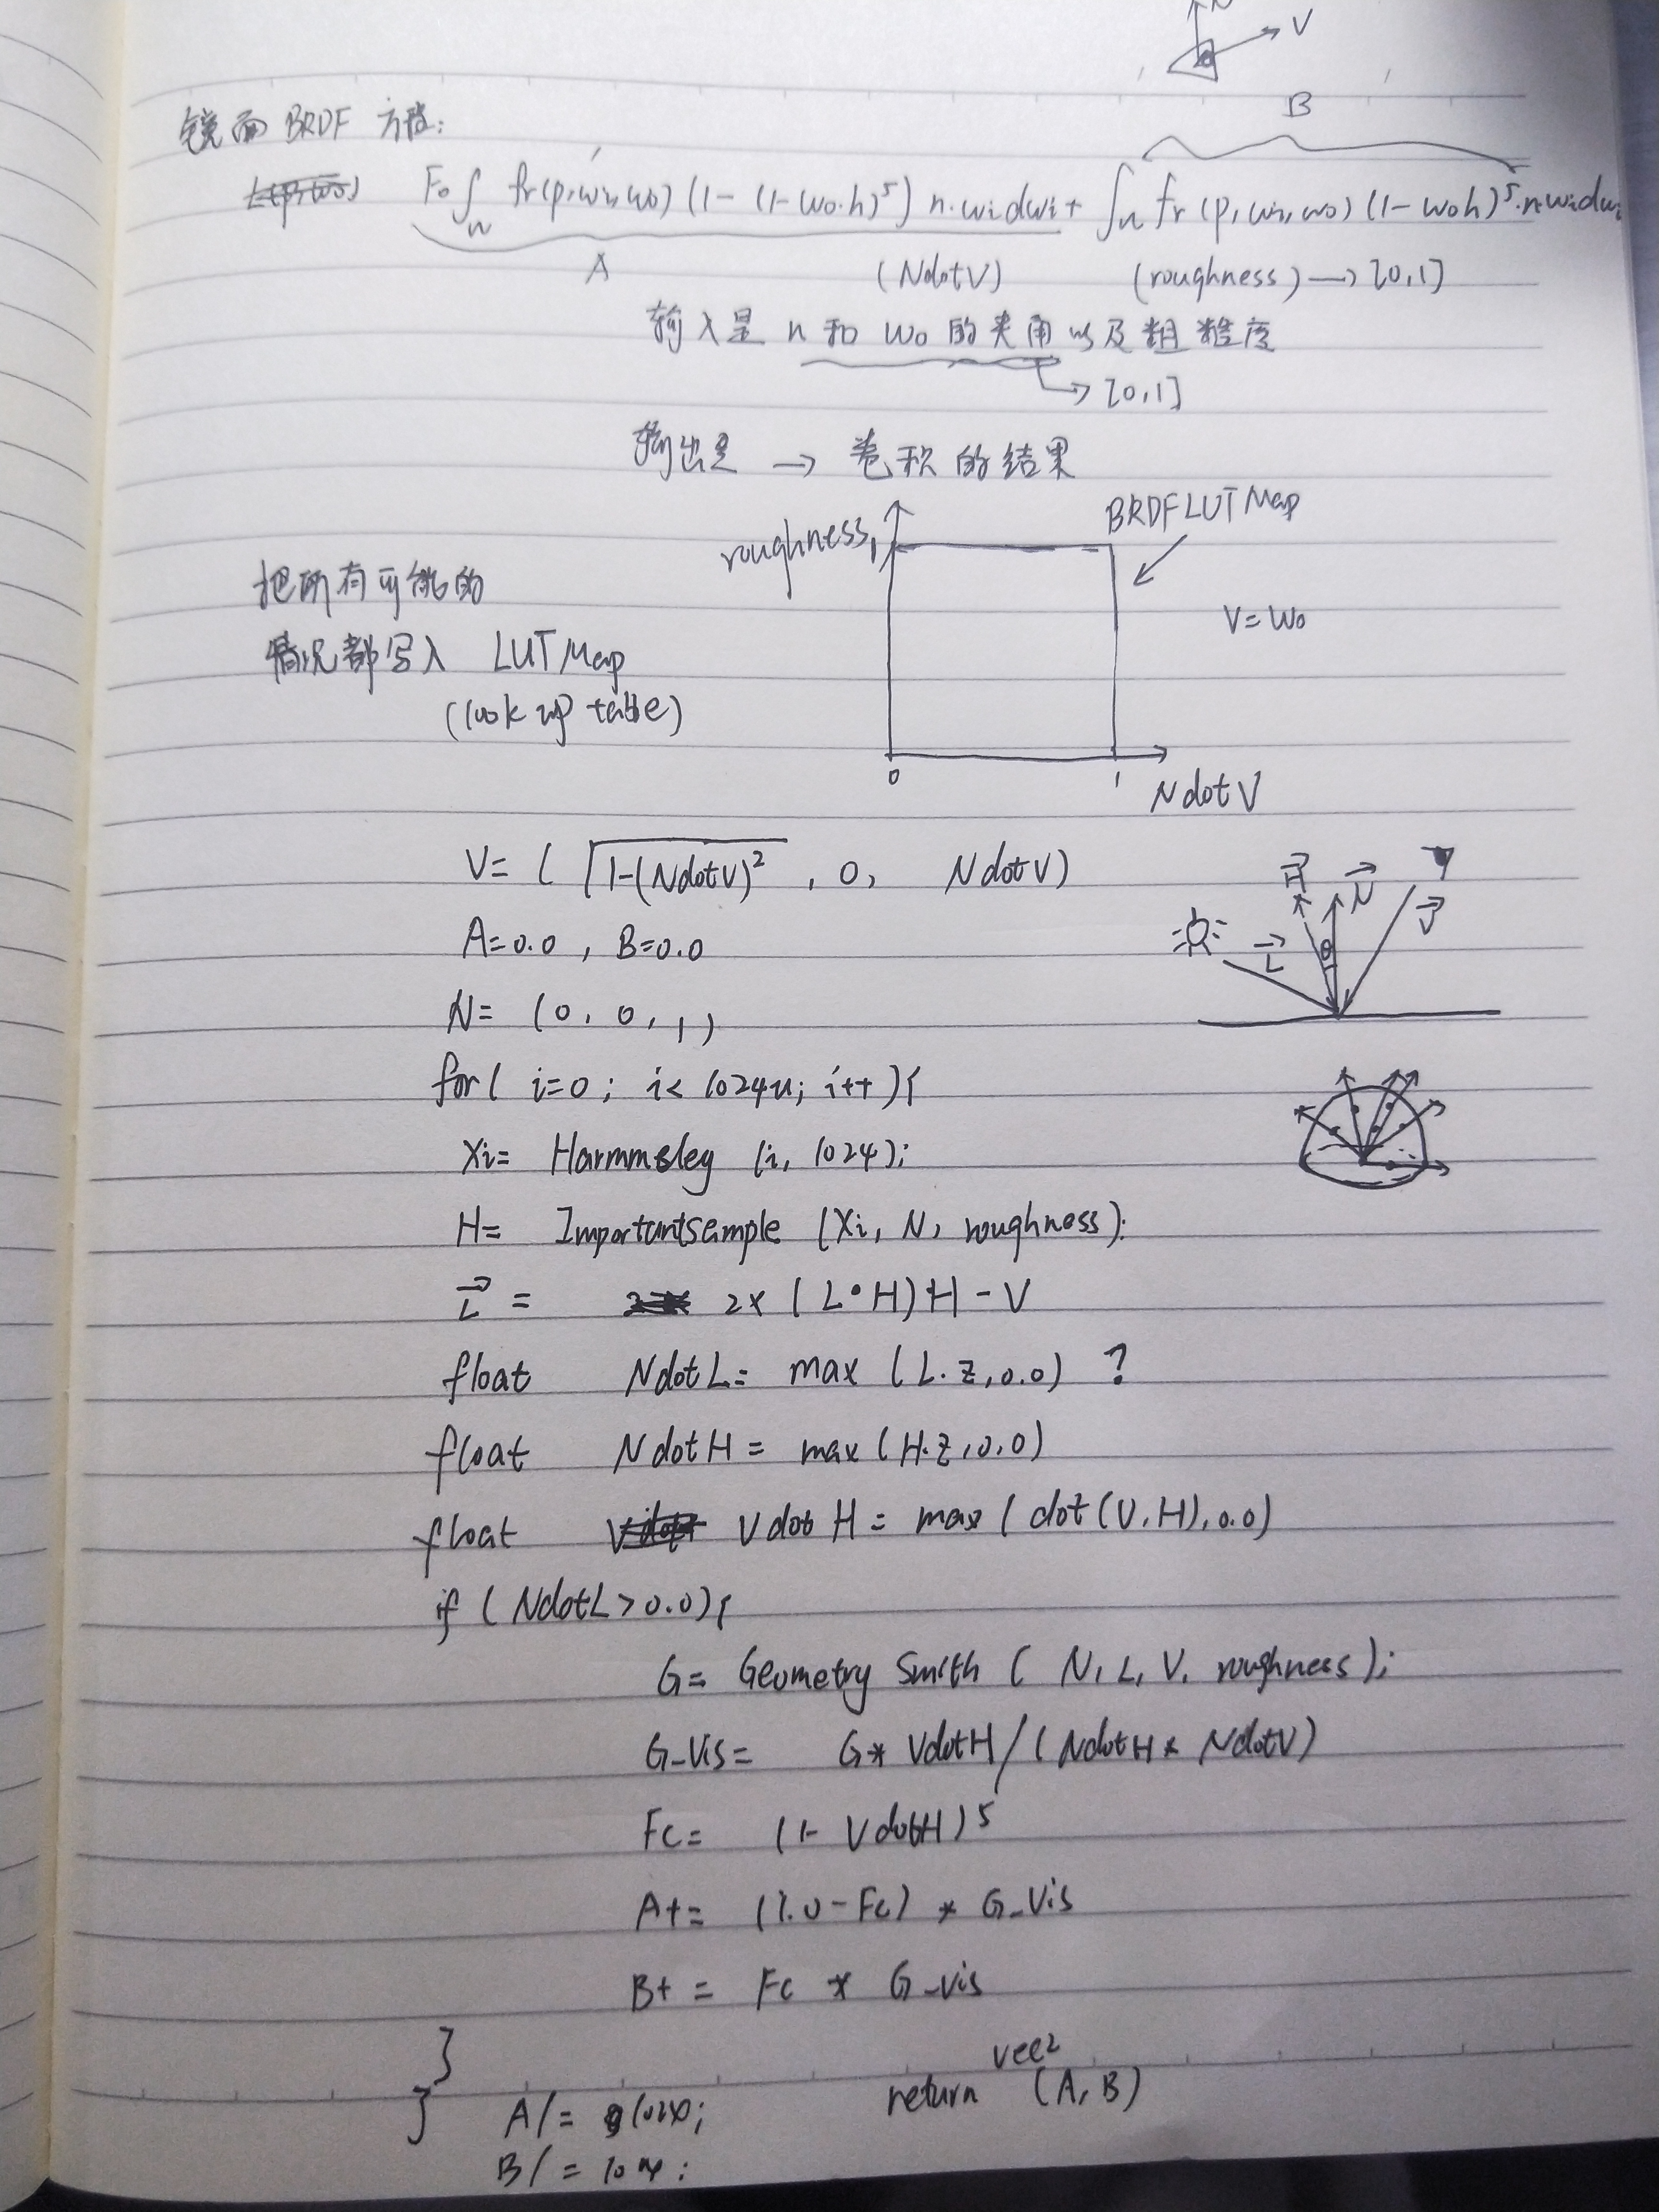 N
V
镜面 BRDF 方程:
B
F₀∫n fr(p,wi,wo)(1-(1-wo·h)⁵) n·widwi + ∫n fr(p,wi,wo)(1-woh)⁵·n·widwi
A
(NdotV) (roughness) → [0,1]
输入是 n 和 wo 的夹角以及粗糙度
→ [0,1]
输出是 → 卷积的结果
roughness, 1
BRDF LUT Map
把所有可能的
情况都写入 LUT Map
(look up table)
V = wo
0 1
NdotV
V= ( √1-(NdotV)² , 0, NdotV)
A=0.0 , B=0.0
N= (0, 0, 1)
H N V
L θ
for( i=0; i< 1024u; i++ ){
Xi= Harmmsley (i, 1024);
H= Importantsample (Xi, N, roughness);
L = 2x (L·H)H - V
float NdotL= max (L.z,0.0) ?
float NdotH = max(H.z,0.0)
float VdotH = max(dot(V,H),0.0)
if (NdotL>0.0){
G= Geometry Smith ( N, L, V, roughness);
G_Vis= G* VdotH/(NdotH * NdotV)
Fc= (1- VdotH)⁵
A+= (1.0-Fc) * G_Vis
B+= Fc * G_vis
}
}
A/= 1024;
B/=
return vec2 (A,B)